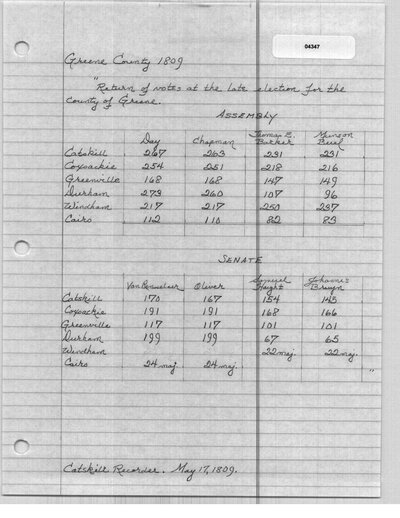 04347
Greene County 1809
"Return of votes at the late election for the
County of Greene.
ASSEMBLY
Day Chapman Thomas E. Barker Munson Buel
Catskill 267 263 231 231
Coxsackie 254 251 218 216
Greenville 168 168 147 149
Durham 273 260 107 96
Windham 217 217 250 237
Cairo 112 110 82 83
SENATE
Van Rensselaer Oliver Samuel Haight Johannes Bruyn
Catskill 170 167 154 143
Coxsackie 191 191 168 166
Greenville 117 117 101 101
Durham 199 199 67 65
Windham 22 maj. 22 maj.
Cairo 24 maj. 24 maj. "
Catskill Recorder. May 17, 1809.